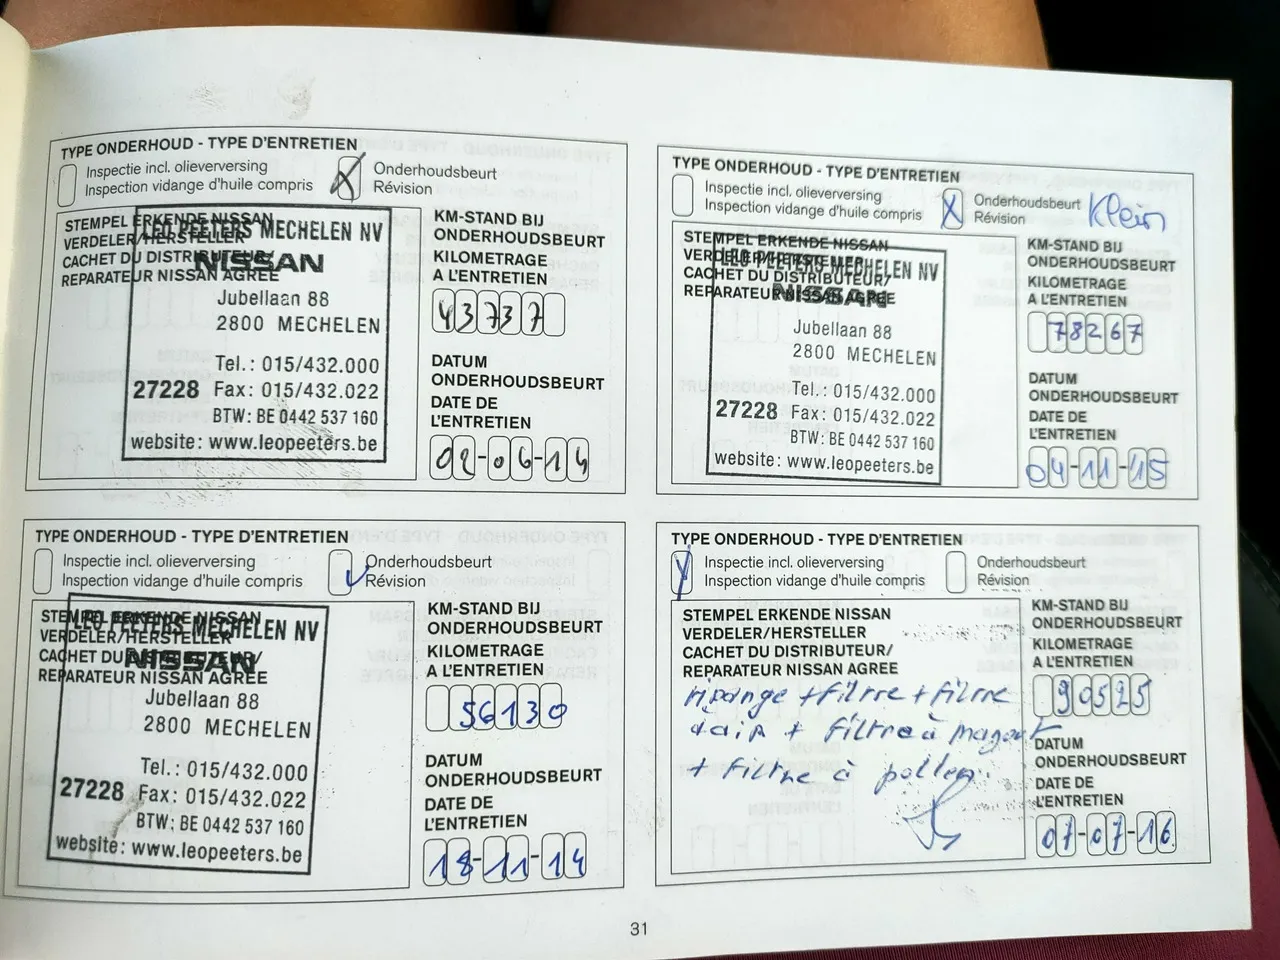 TYPE ONDERHOUD - TYPE D'ENTRETIEN
Inspectie incl. olieverversing
Inspection vidange d'huile compris
X
Onderhoudsbeurt
Révision
STEMPEL ERKENDE NISSAN
VERDELER/HERSTELLER
CACHET DU DISTRIBUTEUR/
REPARATEUR NISSAN AGREE
LEO PEETERS MECHELEN NV
NISSAN
Jubellaan 88
2800 MECHELEN
Tel.: 015/432.000
27228 Fax: 015/432.022
BTW: BE 0442 537 160
website: www.leopeeters.be
KM-STAND BIJ
ONDERHOUDSBEURT
KILOMETRAGE
A L'ENTRETIEN
43737
DATUM
ONDERHOUDSBEURT
DATE DE
L'ENTRETIEN
02-06-14
TYPE ONDERHOUD - TYPE D'ENTRETIEN
Inspectie incl. olieverversing
Inspection vidange d'huile compris
X
Onderhoudsbeurt
Révision
Klein
STEMPEL ERKENDE NISSAN
VERDELER/HERSTELLER
CACHET DU DISTRIBUTEUR/
REPARATEUR NISSAN AGREE
LEO PEETERS MECHELEN NV
NISSAN
Jubellaan 88
2800 MECHELEN
Tel.: 015/432.000
27228 Fax: 015/432.022
BTW: BE 0442 537 160
website: www.leopeeters.be
KM-STAND BIJ
ONDERHOUDSBEURT
KILOMETRAGE
A L'ENTRETIEN
78267
DATUM
ONDERHOUDSBEURT
DATE DE
L'ENTRETIEN
04-11-15
TYPE ONDERHOUD - TYPE D'ENTRETIEN
Inspectie incl. olieverversing
Inspection vidange d'huile compris
Onderhoudsbeurt
Révision
STEMPEL ERKENDE NISSAN
VERDELER/HERSTELLER
CACHET DU DISTRIBUTEUR/
REPARATEUR NISSAN AGREE
LEO PEETERS MECHELEN NV
NISSAN
Jubellaan 88
2800 MECHELEN
Tel.: 015/432.000
27228 Fax: 015/432.022
BTW: BE 0442 537 160
website: www.leopeeters.be
KM-STAND BIJ
ONDERHOUDSBEURT
KILOMETRAGE
A L'ENTRETIEN
56130
DATUM
ONDERHOUDSBEURT
DATE DE
L'ENTRETIEN
18-11-14
TYPE ONDERHOUD - TYPE D'ENTRETIEN
Inspectie incl. olieverversing
Inspection vidange d'huile compris
Onderhoudsbeurt
Révision
STEMPEL ERKENDE NISSAN
VERDELER/HERSTELLER
CACHET DU DISTRIBUTEUR/
REPARATEUR NISSAN AGREE
+ filtre + filtre
d'air + filtre à
+ filtre à pollen.
KM-STAND BIJ
ONDERHOUDSBEURT
KILOMETRAGE
A L'ENTRETIEN
90525
DATUM
ONDERHOUDSBEURT
DATE DE
L'ENTRETIEN
07-07-16
31